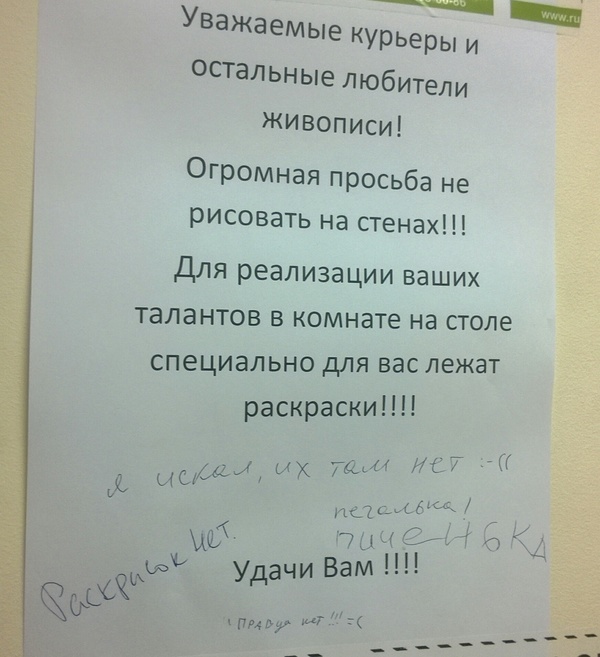 www.ru
Уважаемые курьеры и
остальные любители
живописи!
Огромная просьба не
рисовать на стенах!!!
Для реализации ваших
талантов в комнате на столе
специально для вас лежат
раскраски!!!!
я искал, их там нет :-((
печалька!
пиченбка
Раскрасок нет.
Удачи Вам !!!!
правда нет!!! =(